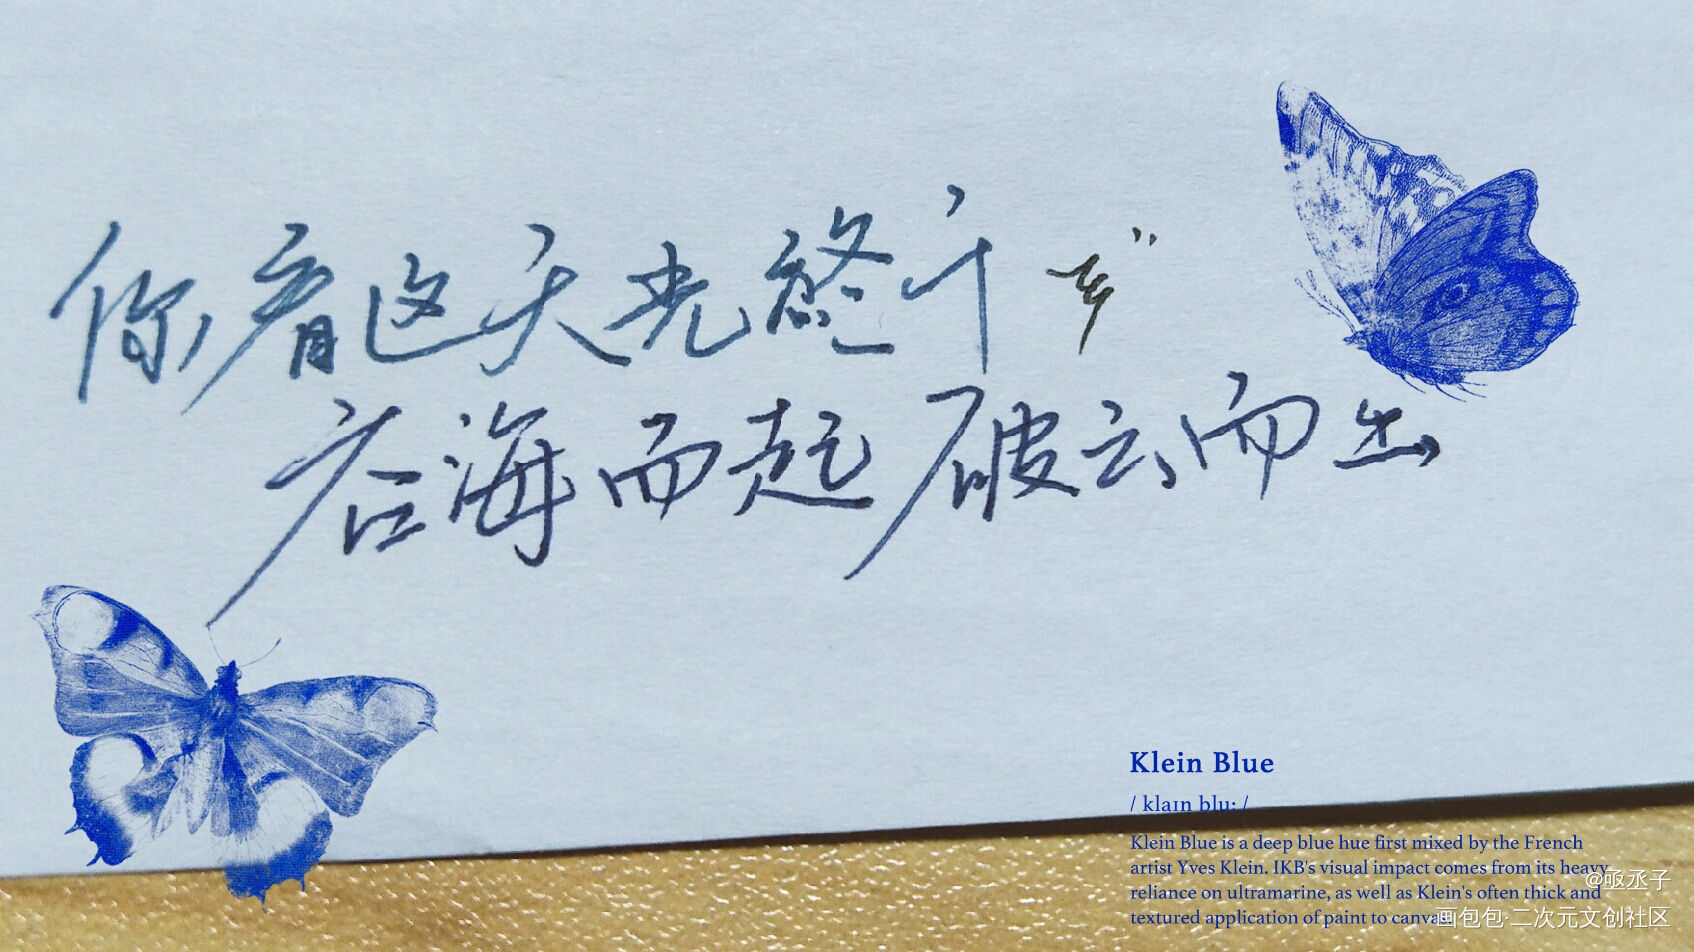 你看这天光终
海而起 破云而出
Klein Blue
/ klaɪn bluː /
Klein Blue is a deep blue hue first mixed by the French
artist Yves Klein. IKB's visual impact comes from its heavy
reliance on ultramarine, as well as Klein's often thick and
textured application of paint to canvas.
@亟丞子
画包包·二次元文创社区